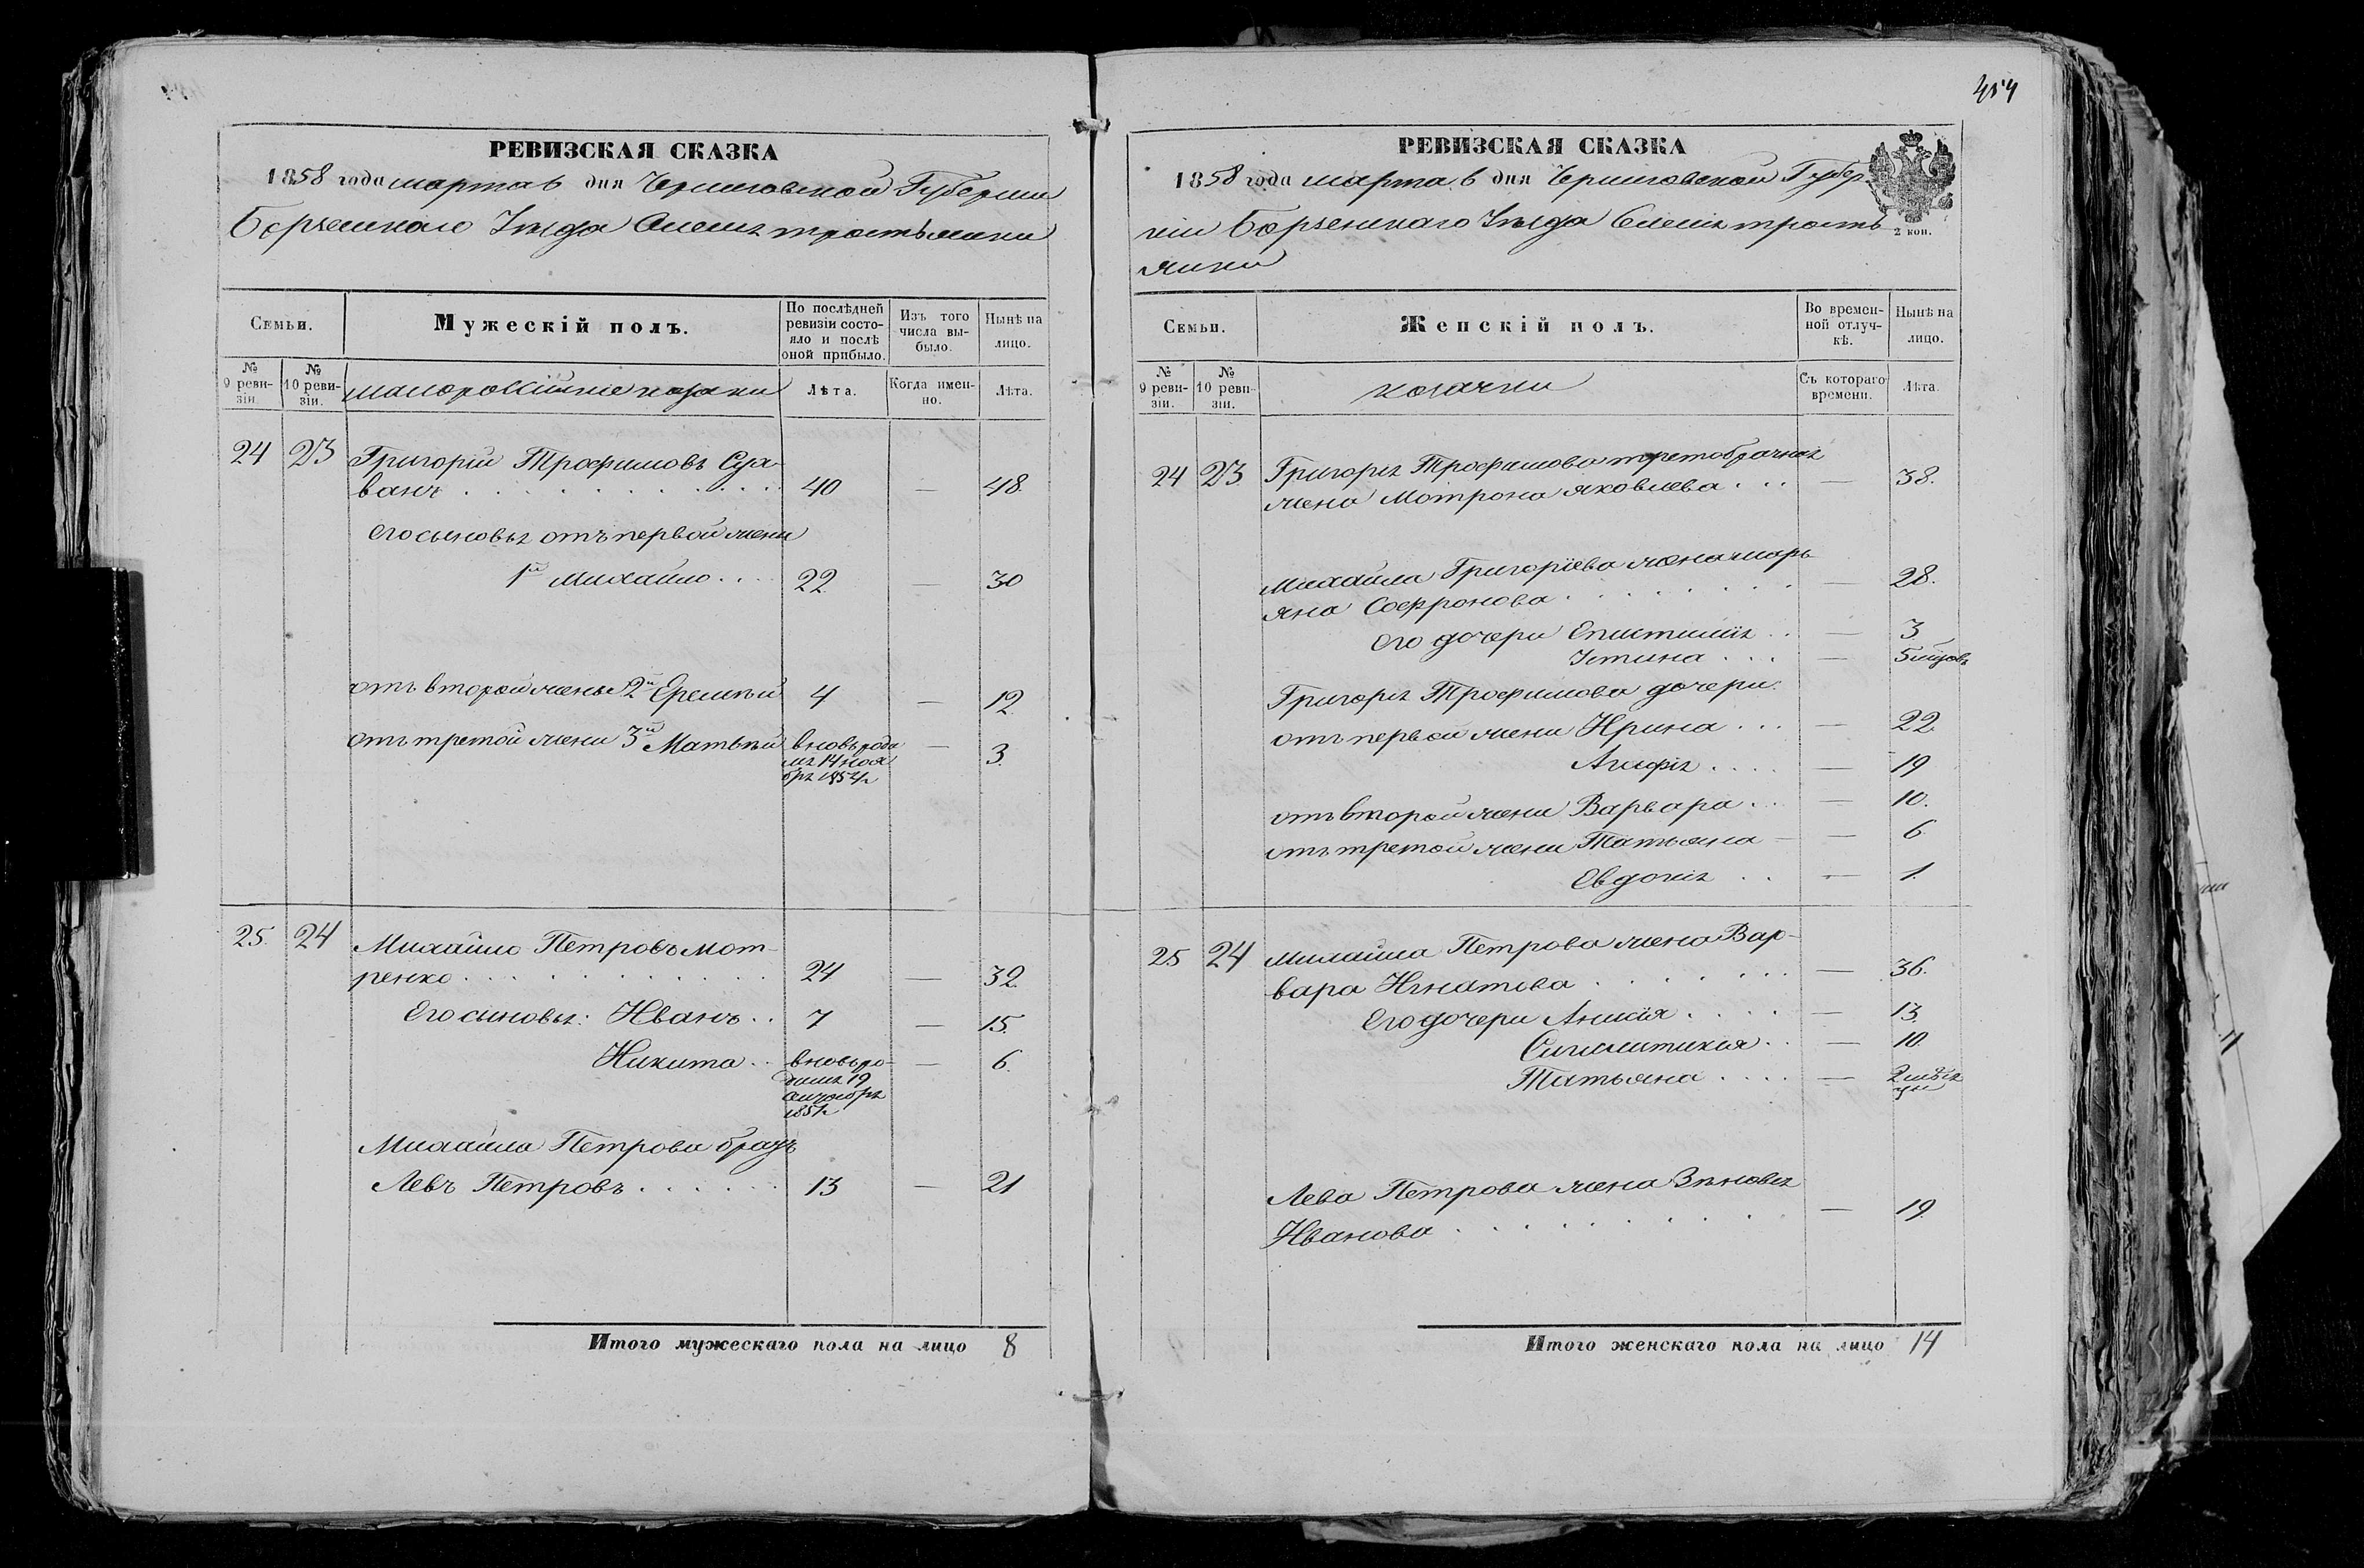 454
РЕВИЗСКАЯ СКАЗКА
1858 года марта 6 дня Черниговской Губернии
Борзенскаго Уѣзда Село Тростянки
Семьи.
Мужескій полъ.
По послѣдней ревизіи состояло и послѣ оной прибыло.
Изъ того числа выбыло.
Нынѣ на лицо.
№ 9 ревизіи.
№ 10 ревизіи.
малороссійские козаки
Лѣта.
Когда именно.
Лѣта.
24 23 Григорій Трофимовъ
ванъ . . . 40 — 48.
его сыновья отъ первой жены
1й Михайло . . . 22 — 30
отъ второй жены 2й Еремѣй 4 — 12
отъ третой жены 3й Матвѣй вновь роди — 3.
лся 14 ноя
бря 1854г
25. 24 Михайло Петровъ Мот-
ренко . . . 24 — 32.
Его сыновья: Иванъ . . 7 — 15.
Никита . . вновь ро- — 6.
дился 19
1851г
Михайла Петрова братъ
Левъ Петровъ . . . 13 — 21
Итого мужескаго пола на лицо 8
РЕВИЗСКАЯ СКАЗКА
1858 года марта 6 дня Черниговской Губер-
ніи Борзенскаго Уѣзда Тростя-
нки
2 коп.
Семьи.
Женскій полъ.
Во временной отлучкѣ.
Нынѣ на лицо.
№ 9 ревизіи.
№ 10 ревизіи.
козачки
Съ котораго времени.
Лѣта.
24 23. Григорья Трофимова третобрачная
жена Мотрона Яковлева . . . — 38.
Михайла Григоріева жена Марь
яна Софронова . . . — 28.
Его дочери Епистимія . . — 3
Устина . . . — 5 мѣсцовъ
Григорья Трофимова дочери:
отъ первой жены Ирина . . . — 22
Агафія . . . . — 19
отъ второй жены Варвара . . — 10.
отъ третой жены Татьяна — — 6
Евдокія . . — 1.
25 24 Михайла Петрова жена Вар-
вара Игнатова . . . — 36.
Его дочери Анисія . . . . — 13.
Сигклитикія . . — 10.
Татьяна . . . . — 2 мѣся
цы
Лева Петрова жена Зѣновія
Иванова . . . — 19.
Итого женскаго пола на лицо 14